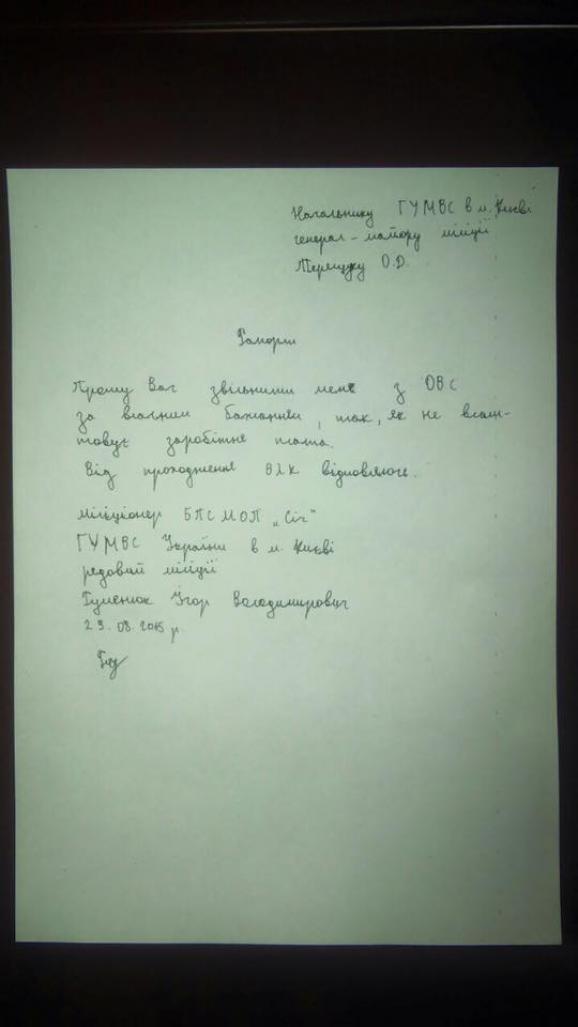 Начальнику ГУМВС в м. Києві
генерал-майору міліції
Терещуку О.Д.
Рапорт
Прошу Вас звільнити мене з ОВС
за власним бажанням, так, як не влаш-
товує заробітна плата.
Від проходження ВЛК відмовляюсь.
Міліціонер БПСМОП „Січ"
ГУМВС України в м. Києві
рядовий міліції
Гуменюк Ігор Володимирович
29.08.2015 р.